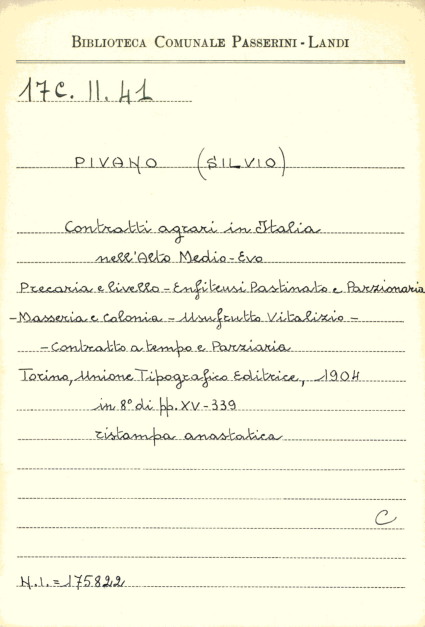 BIBLIOTECA COMUNALE PASSERINI - LANDI
17C. II. 41
PIVANO (SILVIO)
Contratti agrari in Italia
nell'Alto Medio-Evo
Precaria e livello - Enfiteusi Pastinato e Parzionaria
-Masseria e Colonia - Usufrutto Vitalizio -
- Contratto a tempo e Parziaria
Torino, Unione Tipografico Editrice, 1904
in 8° di pp. XV-339
ristampa anastatica
C
N.I. = 175822